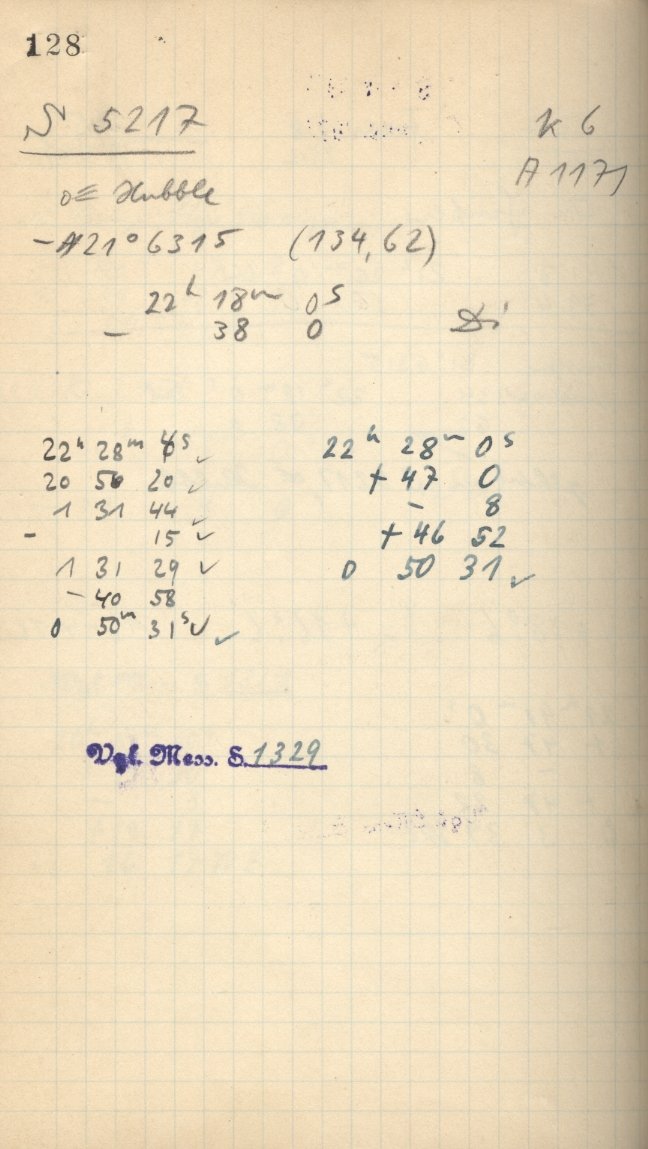 128
S 5217
K 6
A 1171
Hubble
-21° 6315 (134,62)
22h 18m 0s
- 38 0
Di
22h 28m 0s ✓
20 56 20 ✓
1 31 44 ✓
- 15 ✓
1 31 29 ✓
- 40 58
0 50m 31s ✓ ✓
22h 28m 0s
+ 47 0
- 8
+ 46 52
0 50 31 ✓
Vgl. Mess. S. 1329